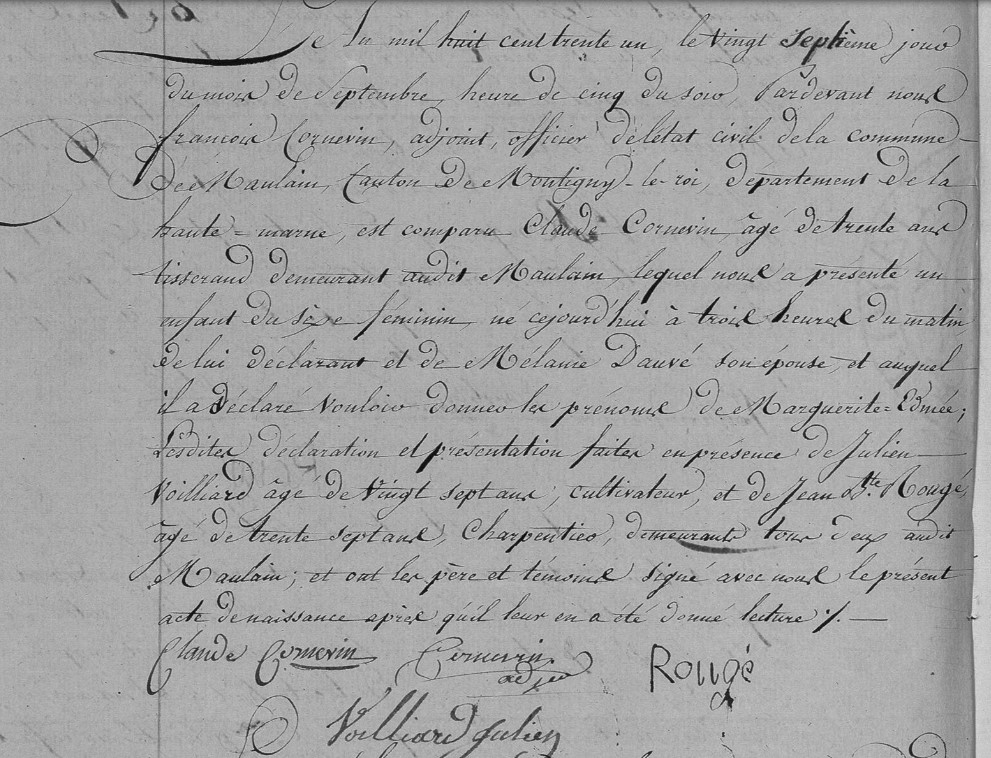 Le An mil huit cent trente un, le vingt septième jour
du mois de Septembre, heure de cinq du soir, Pardevant nous
françois Cornevin, adjoint, officier de l'état civil de la commune
de Maulain, Canton de Montigny-le-roi, département de la
haute=marne, est comparu Claude Cornevin, âgé de trente ans
tisserand demeurant audit Maulain, lequel nous a présenté un
enfant du sèxe féminin, né cejourd'hui à trois heures du matin
de lui déclarant et de Mélanie Dauvé son épouse, et auquel
il a déclaré vouloir donner les prénoms de Marguerite=Edmée;
Lesdites déclaration et présentation faites en présence de Julien
Voilliard âgé de vingt sept ans, cultivateur, et de Jean Bte. Rougé,
âgé de trente sept ans, Charpentier, demeurants tous deux audit
Maulain; et ont les père et témoins signé avec nous le présent
acte de naissance après qu'il leur en a été donné lecture ./.
Claude Cornevin Cornevin Rougé
adj
Voilliard Julien